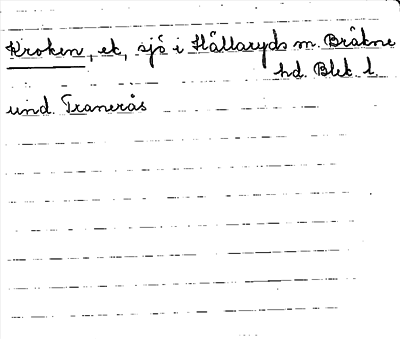 Kroken, ek, sjö i Hällaryds m. Bräkne
hd. Blek. l.
und. Tranerås